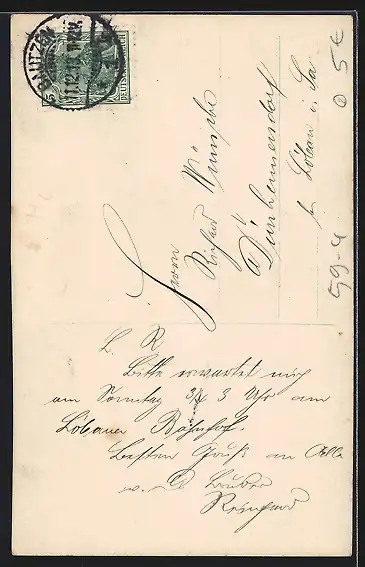 BAUTZEN
11.12.
DEUTSCHES REICH
Herrn
Richard Wünsche
Dürrhennersdorf
bei Löbau i. Sa.
5 €
59-4
L. R.
Bitte erwartet mich
am Sonntag 3/4 3 Uhr am
Löbauer Bahnhof.
Besten Gruß an Alle
Bruder